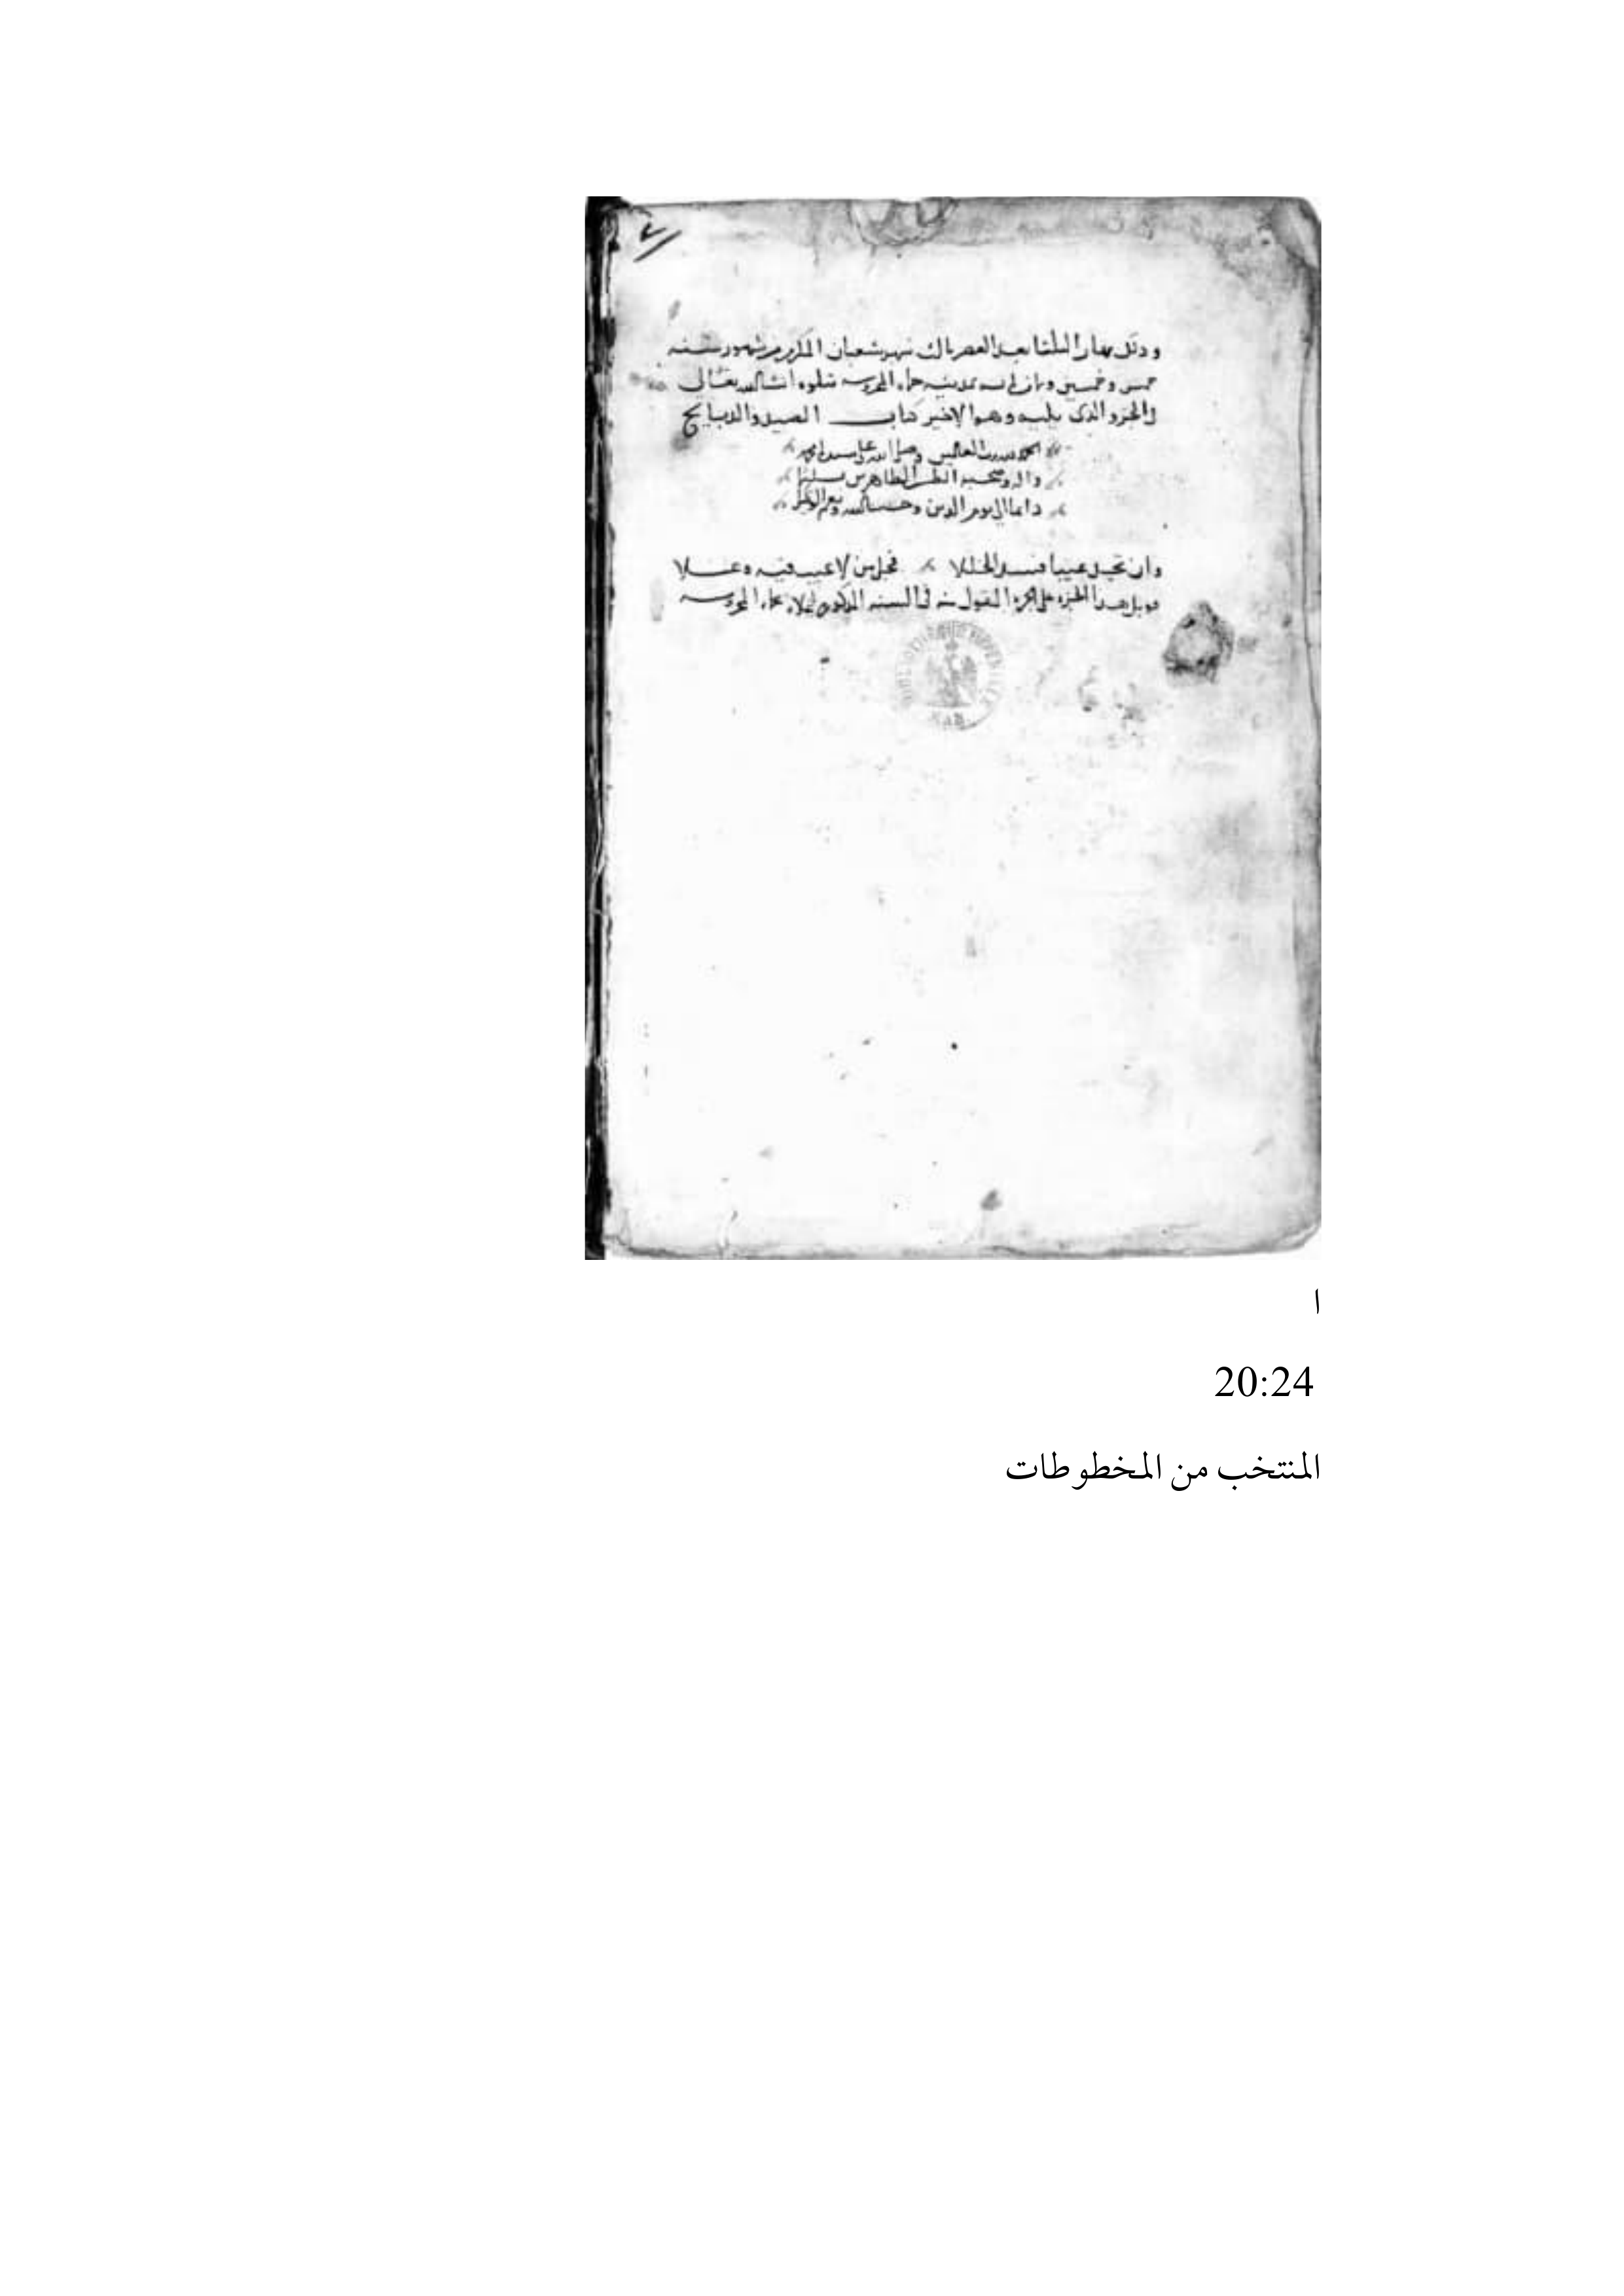 وذلك نهار الثلثا بعد العصر ثالث شهر شعبان المكرم من شهور سنه
خمس وخمسين وثمان مايه بمدينه حماه المحروسه يتلوه ان شا الله تعالى
في الجزو الذي يليه وهو الاخير كتاب الصيد والذبايح
الحمد لله رب العالمين وصلى الله على سيدنا محمد
واله وصحبه الطاهرين وسلم
دايما الى يوم الدين وحسبنا الله ونعم الوكيل
وان تجد عيبا فسد الخللا فجل من لا عيب فيه وعلا
قوبل هذا الجزء على الجزء المنقول منه في السنه المذكوره بحماه المحروسه
ا
20:24
المنتخب من المخطوطات